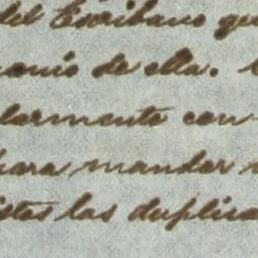 del Escribano que
de ella.
larmente con
para mandar
las duplica